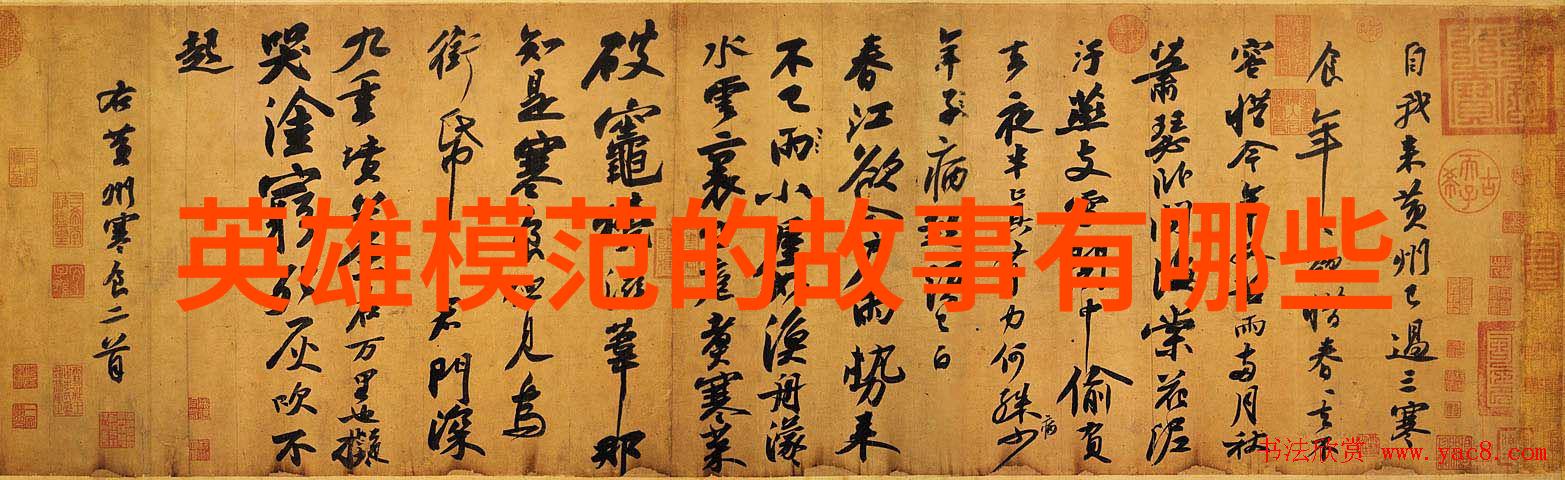 自我来黄州已過三寒
食年〻欲惜春〻去不
容惜今年又苦雨两月秋
蕭瑟卧聞海棠花泥
汙燕支雪闇中偷負
去夜半真有力何殊少
病
年子病起頭已白
春江欲入户雨勢来
不已雨小屋如漁舟濛
水雲裏空庖煑寒菜
破竈燒濕葦那
知是寒食但見烏
銜帋君門深
九重墳墓在万里也擬
哭塗窮死灰吹不
起
右黄州寒食二首
英雄模范的故事有哪些
书法欣赏 www.yac8.com